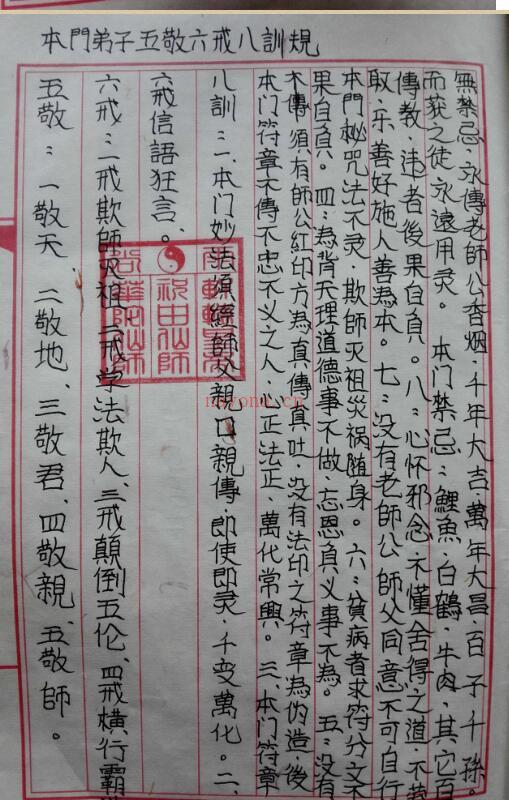 本門弟子五敬六戒八訓規
五敬：一敬天、二敬地、三敬君、四敬親、五敬師。
六戒：一戒欺師灭祖、二戒学法欺人、三戒顛倒五伦、四戒橫行霸
六戒信語狂言。
八訓：一、本门妙法須經師父親口親傳，即使即灵，千变萬化。二、
本门符章不傳不忠不义之人，心正法正，萬化常興。三、本门符章
不傳，須有師公紅印方為真傳真吐，没有法印之符章為伪造，後
果自負。四：為背天理道德事不做，忘恩負义事不為。五：没有
本門秘咒法不灵，欺師灭祖災祸随身。六：貧病者求符分文不
取，乐善好施人善為本。七：没有老師公師父同意不可自行
傳教，违者後果自負。八：心怀邪念，不懂舍得之道，不劳
而获之徒永遠用灵。本门禁忌：鯉魚、白鶴、牛肉，其它百
無禁忌，永傳老師公香烟，千年大吉，萬年大昌，百子千孫。
祝由仙師
華陀仙師